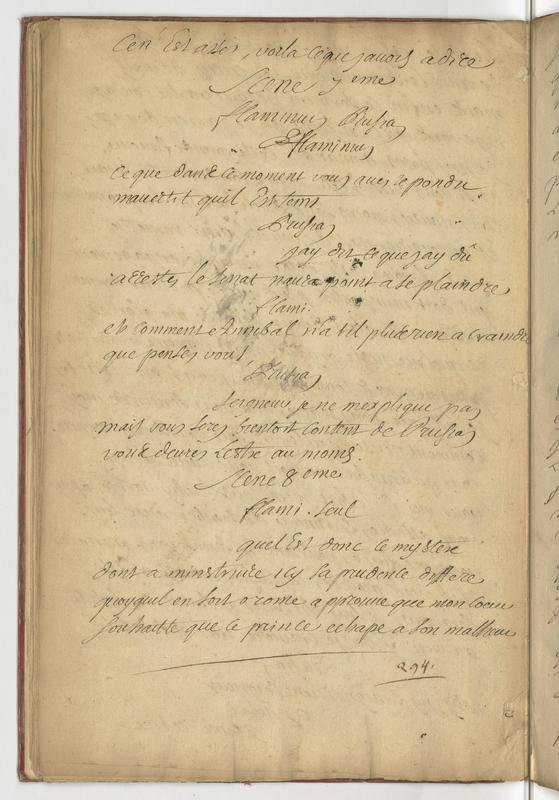 cen Est assés, voila ceque javois a dire
Scene 7eme
flaminius Prusias
flaminius
ce que dans ce moment vous aves repondu
mavertit quil Est tems
Prusias
jay dit ce que jay dû
arrestes le senat naura point a se plaindre
flami.
et comment Annibal n'a til plus rien a craindre
que pensés vous
Prusias
seigneur je ne mexplique pas
mais vous serez bientost content de Prusias
vous devres Lestre au moins.
Scene 8eme
flami. seul
quel Est donc ce mystere
dont a minstruire icy sa prudence differe
quoyquil en soit o rome approuve que mon coeur
souhaitte que ce prince echape a son malheur
294.